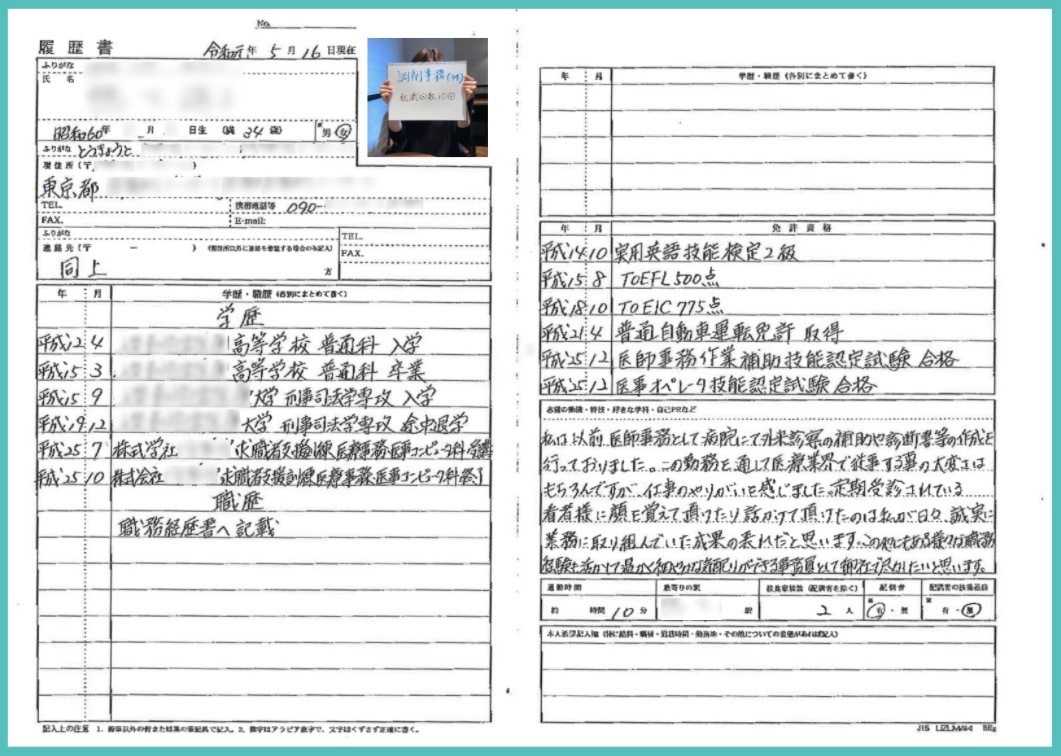 No.
履歴書
令和元年 5月 16日現在
調剤事務(パート)
ふりがな
氏名
昭和60年 月 日生 (満 34歳)
男 女
ふりがな とうきょうと
現住所(〒 )
東京都
TEL.
FAX.
携帯電話等 090-
E-mail:
ふりがな
連絡先(〒 - ) (現住所以外に連絡を希望する場合のみ記入)
同上 方
TEL.
FAX.
年 月 学歴・職歴(各別にまとめて書く)
学歴
平成12 4 高等学校 普通科 入学
平成15 3 高等学校 普通科 卒業
平成15 9 大学 刑事司法学専攻 入学
平成19 12 大学 刑事司法学専攻 途中退学
平成25 7 株式学社 求職者支援訓練医療事務医事コンピュータ科受講
平成25 10 株式会社 求職者支援訓練医療事務医事コンピュータ科修了
職歴
職務経歴書へ記載
記入上の注意 1. 鉛筆以外の青または黒の筆記具で記入。2. 数字はアラビア数字で、文字はくずさず正確に書く。
年 月 学歴・職歴(各別にまとめて書く)
年 月 免許資格
平成14 10 実用英語技能検定2級
平成15 8 TOEFL500点
平成18 10 TOEIC 775点
平成21 4 普通自動車運転免許 取得
平成25 12 医師事務作業補助技能認定試験 合格
平成25 12 医事オペレータ技能認定試験 合格
志望の動機・特技・好きな学科・自己PRなど
私は以前、医師事務として病院にて外来診察の補助や診断書等の作成を
行っておりました。この勤務を通して医療業界で従事する事の大変さは
もちろんですが、仕事のやりがいを感じました。定期受診されている
看者様に顔を覚えて頂けたり話かけて頂けたのは私が日々、誠実に
業務に取り組んでいた成果の表れだと思います。この他にもある様々な職務
経験を活かして温かく細やかな気配りができる事務員として御社で尽力したいと思います。
通勤時間
約 時間 10分
最寄りの駅
駅
扶養家族数(配偶者を除く)
2人
配偶者
有・無
配偶者の扶養義務
有・無
本人希望記入欄(特に給料・職種・勤務時間・勤務地・その他についての希望があれば記入)